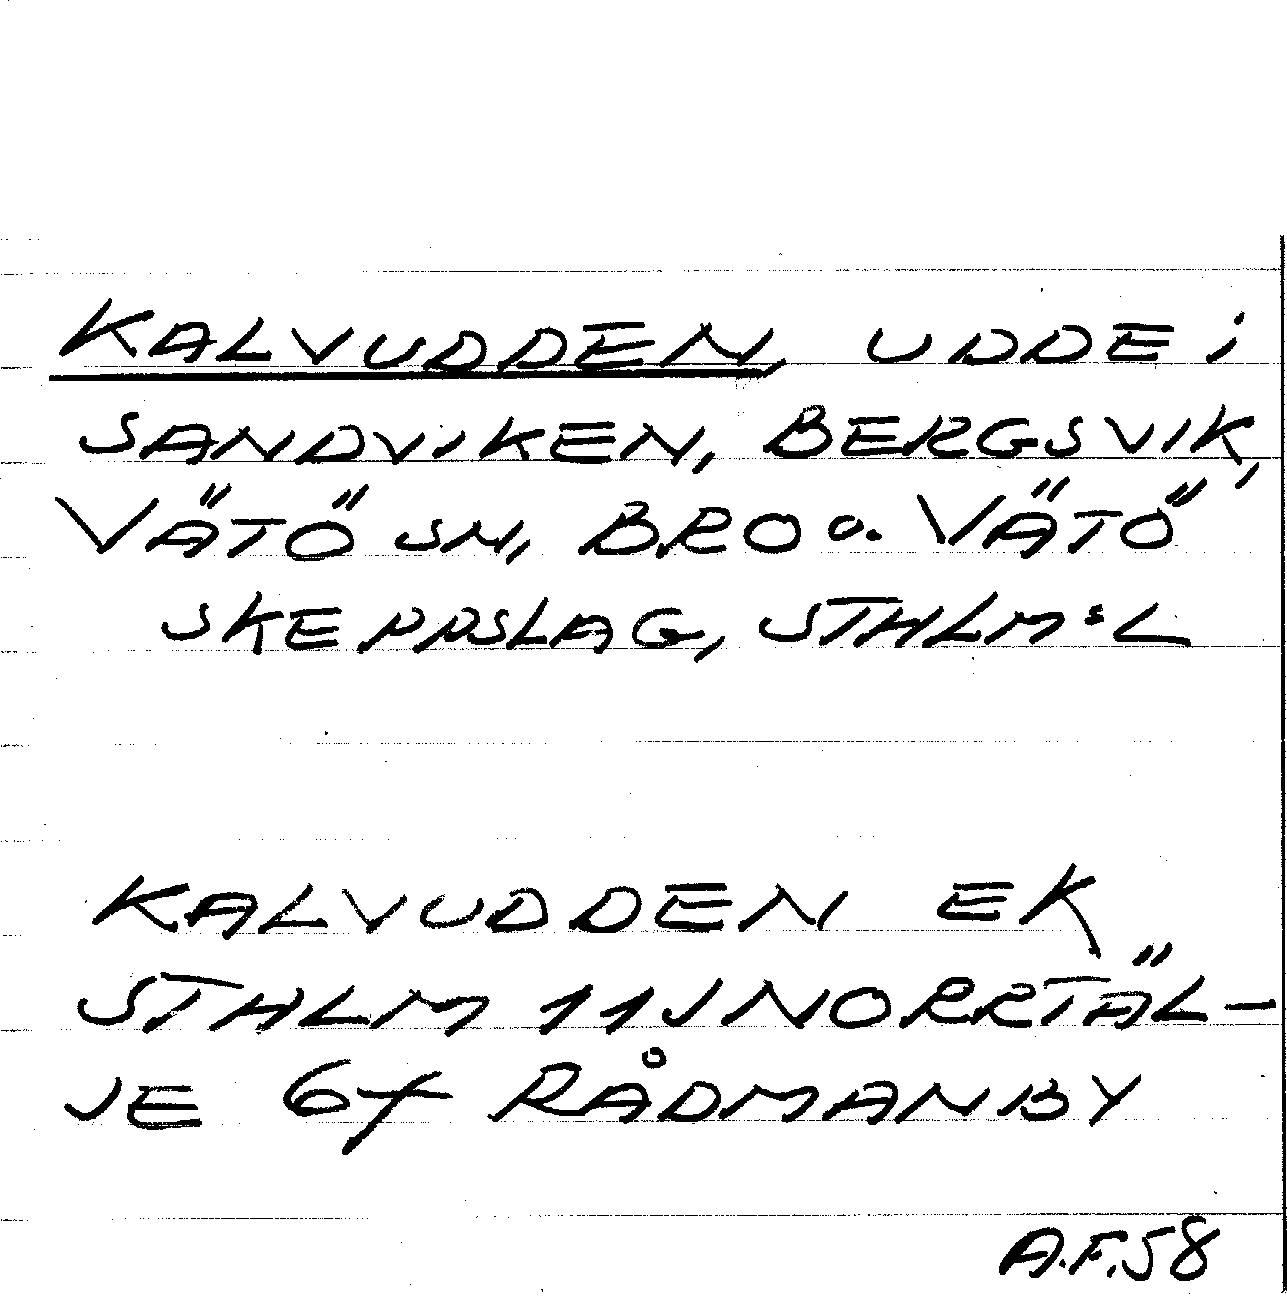 KALVUDDEN, UDDE i
SANDVIKEN, BERGSVIK,
VÄTÖ SN, BRO o. VÄTÖ
SKEPPSLAG, STHLM:S L
KALVUDDEN EK
STHLM 11J NORRTÄL-
JE 6f RÅDMANBY
A.F. 58